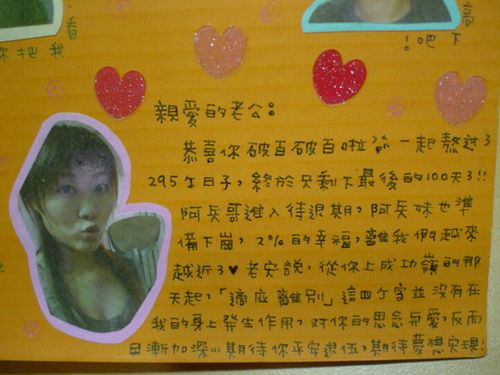 看
你把我
下吧!
親愛的老公:
恭喜你破百破百啦 一起熬過了
295个日子,終於只剩下最後的100天了!!
阿兵哥進入待退期,阿兵妹也準
備下崗,2%的幸福,離我們越來
越近了♥老实說,從你上成功嶺的那
天起,「適应離別」這四个字並沒有在
我的身上發生作用,对你的思念与愛,反而
日漸加深!!期待你平安退伍,期待夢想实現!